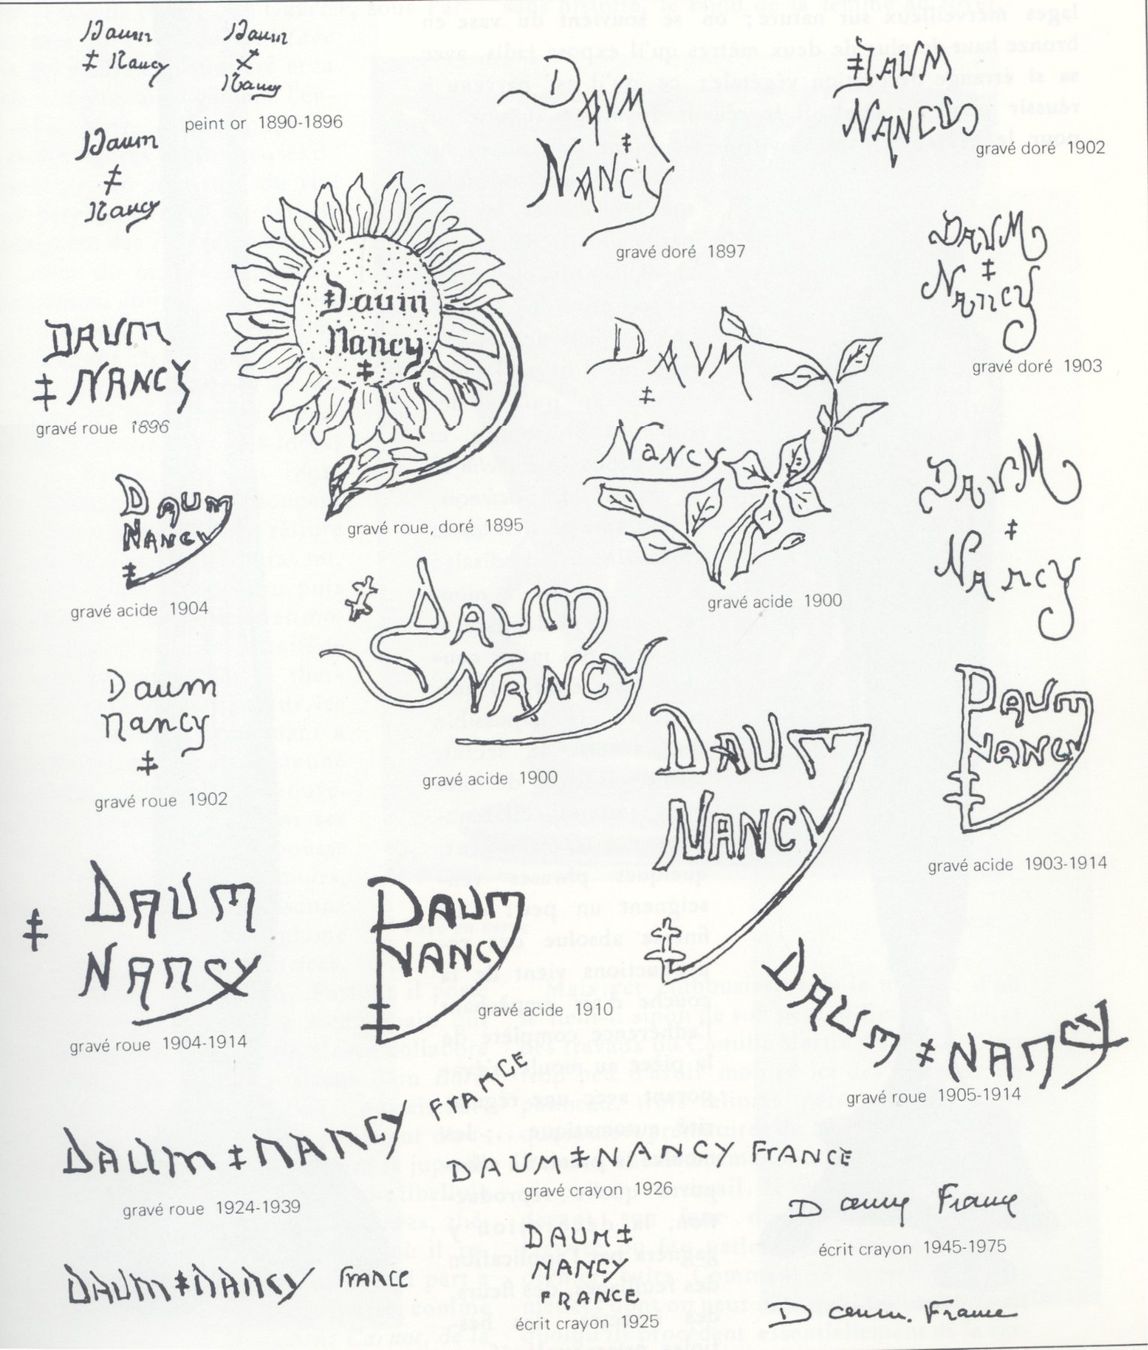 Daum
‡ Nancy
Daum
‡
Nancy
peint or 1890-1896
Daum
‡
Nancy
DAUM
‡
NANCY
gravé doré 1897
‡DAUM
NANCY
gravé doré 1902
Daum
Nancy
‡
gravé roue, doré 1895
DAUM
‡
Nancy
gravé doré 1903
DAUM
‡ NANCY
gravé roue 1896
DAUM
‡
Nancy
gravé acide 1900
DAUM
NANCY
‡
gravé acide 1904
DAUM
‡
Nancy
‡ DAUM
NANCY
gravé acide 1900
Daum
nancy
‡
gravé roue 1902
DAUM
NANCY
‡
DAUM
NANCY
‡
gravé acide 1903-1914
DAUM
‡ NANCY
gravé roue 1904-1914
DAUM
NANCY
‡
gravé acide 1910
DAUM ‡ NANCY
gravé roue 1905-1914
DAUM ‡ NANCY FRANCE
gravé roue 1924-1939
DAUM ‡ NANCY FRANCE
gravé crayon 1926
Daum France
écrit crayon 1945-1975
DAUM ‡ NANCY FRANCE
DAUM ‡
NANCY
FRANCE
écrit crayon 1925
Daum. France